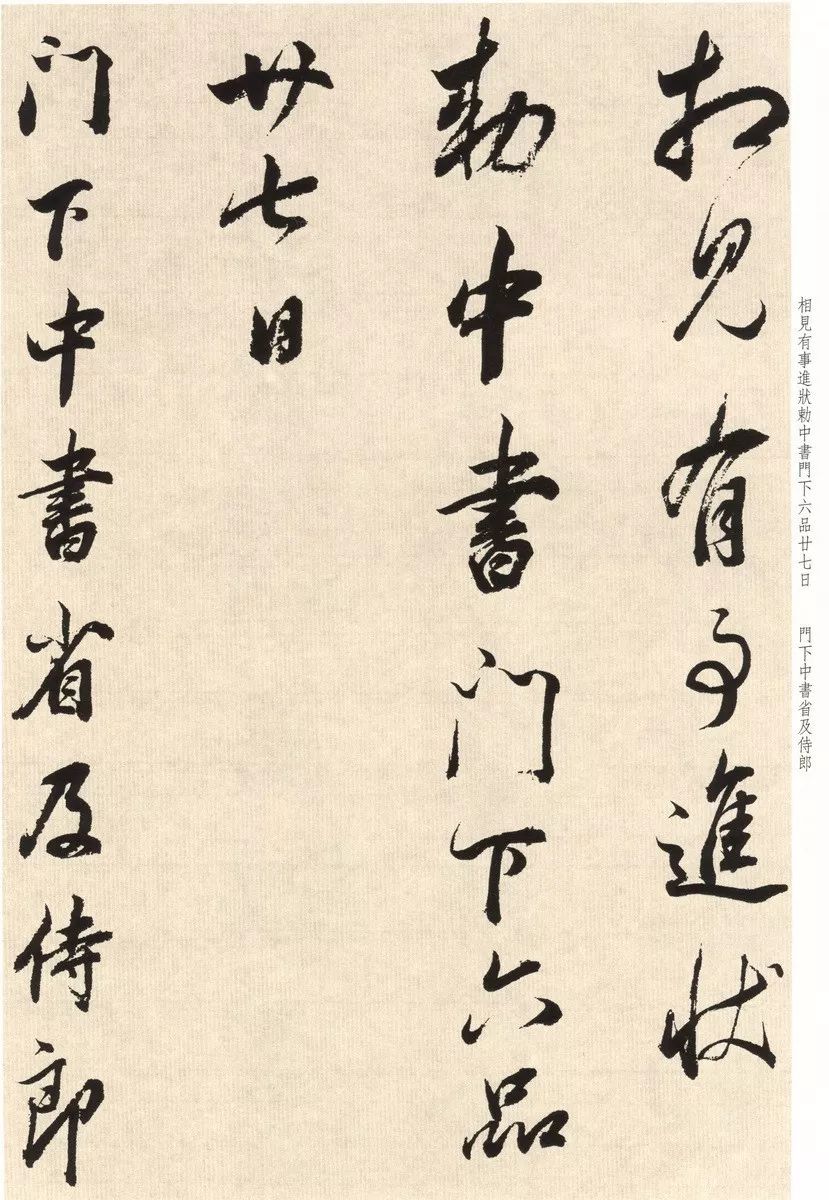 相見有事進狀
勅中書門下六品
廿七日
門下中書省及侍郎
相見有事進狀勅中書門下六品廿七日　門下中書省及侍郎